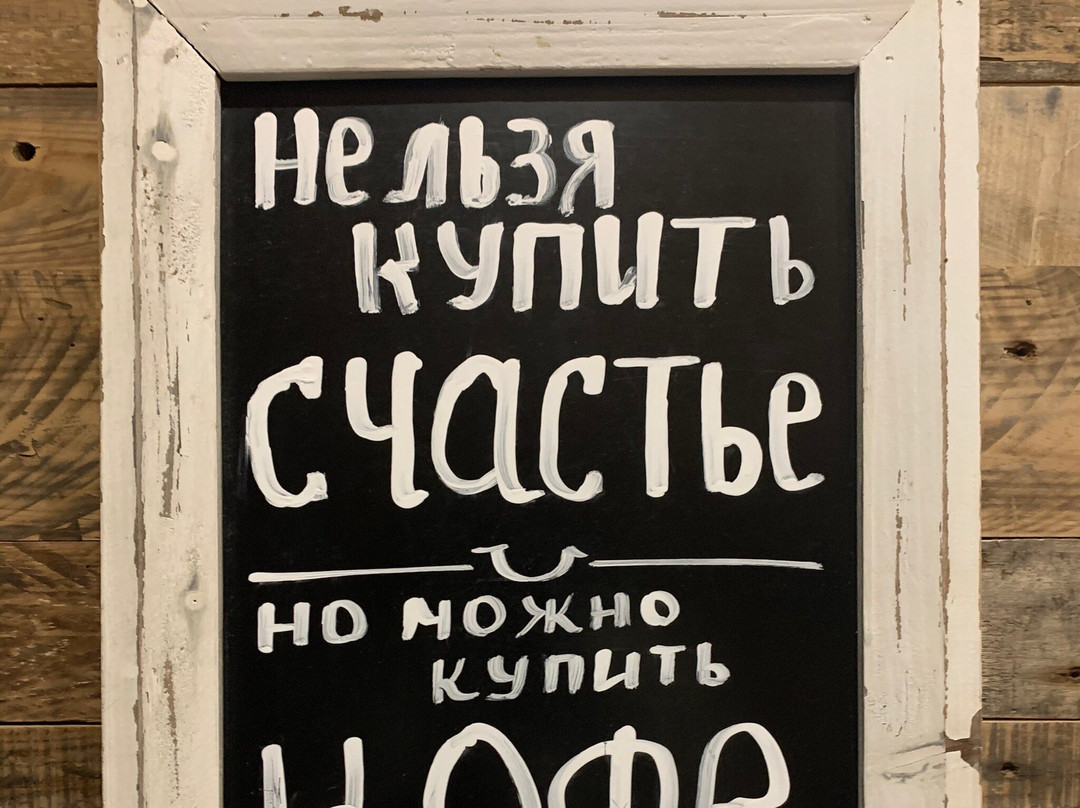 нельзя
купить
счастье
но можно
купить
кофе